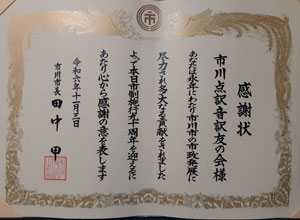 感謝状
市川点訳音訳友の会様
あなたは永年にわたり市川市の市政発展に
尽力され多大なる貢献をされました
よって本日市制施行九十周年を迎えるに
あたり心から感謝の意を表します
令和六年十一月三日
市川市長 田中 甲